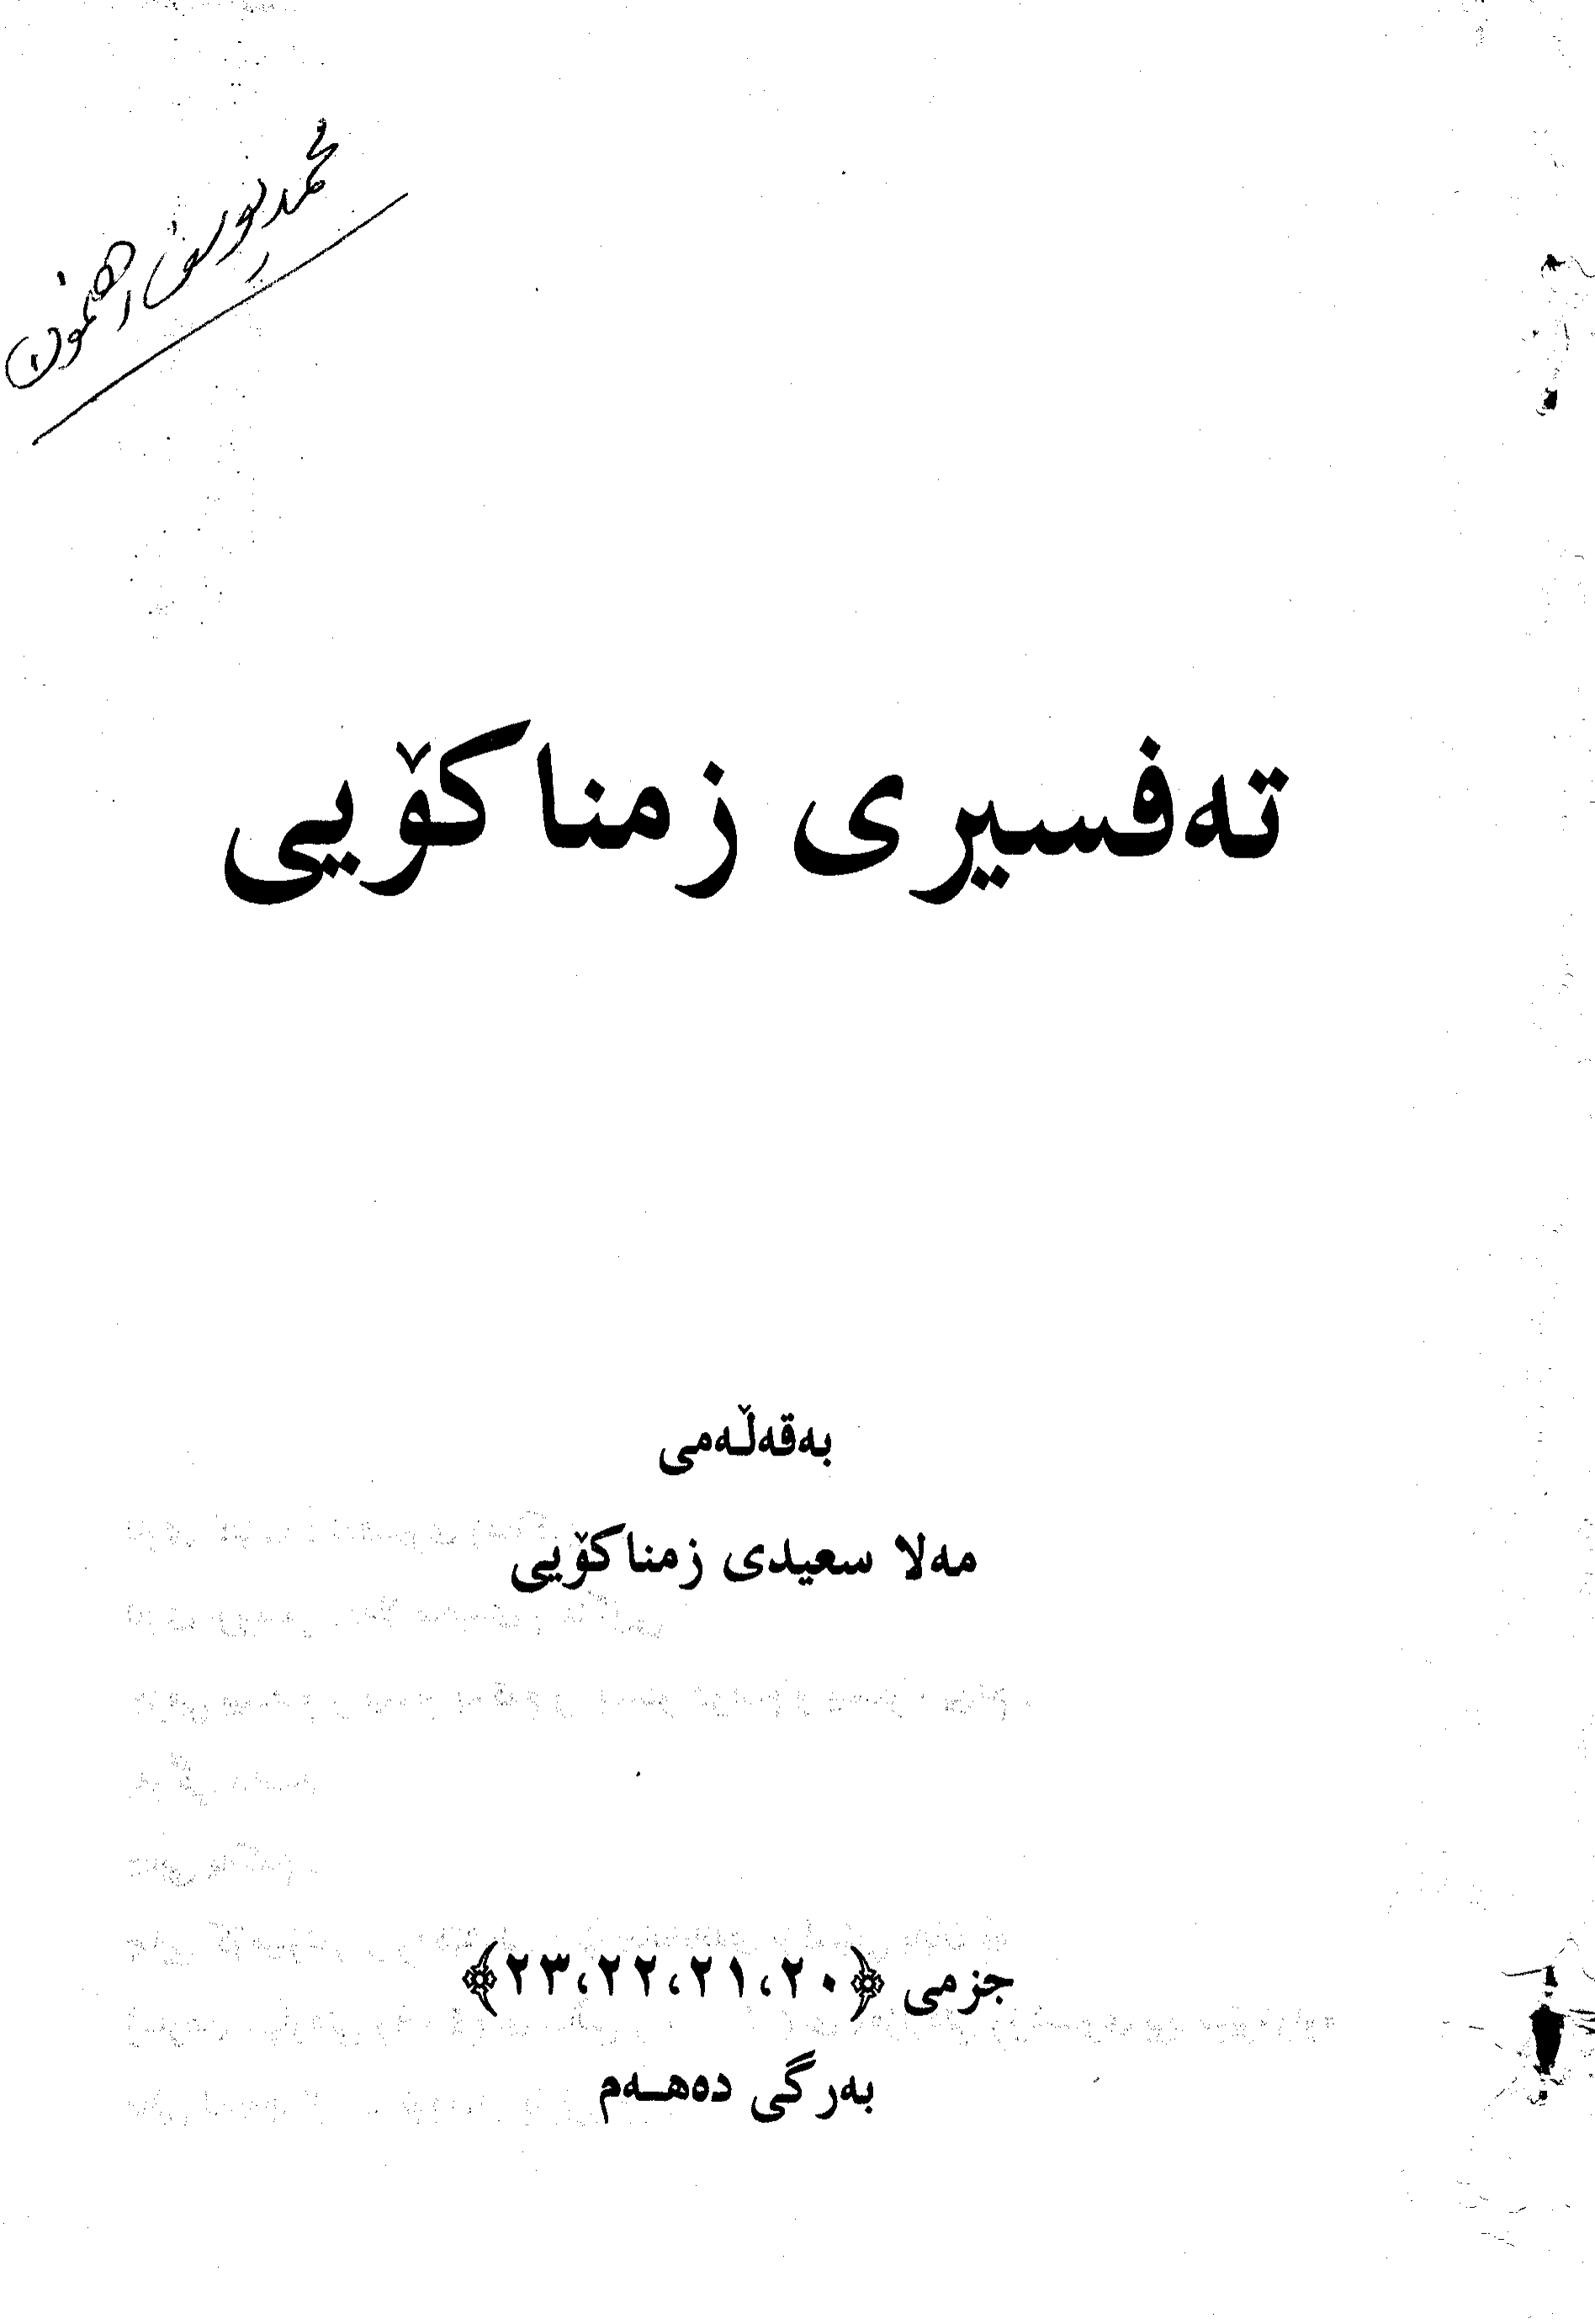 محمد یوسف رهنمون
تەفسیری زمناکۆیی
بەقەڵەمی
مەلا سعیدی زمناکۆیی
جزمی ﴿٢٠،٢١،٢٢،٢٣﴾
بەرگی دەهـەم